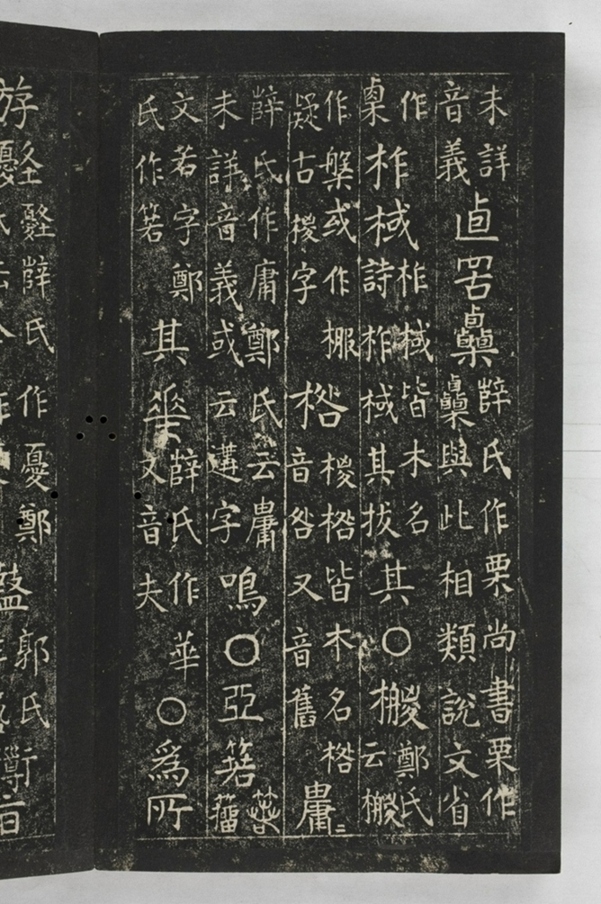 未詳音義卣罟薛氏作栗尚書栗作與此相類說文省
作㮚柞棫柞棫皆木名詩柞棫其拔其〇鄭氏云
作槃或作棴疑古椶字楁椶楁皆木名楁音咎又音舊
薛氏作庸鄭氏云未詳音義或云遘字鳴〇亞箬
文若字鄭氏作箬其華薛氏作華又音夫〇爲所
游盩薛氏作憂鄭郭氏